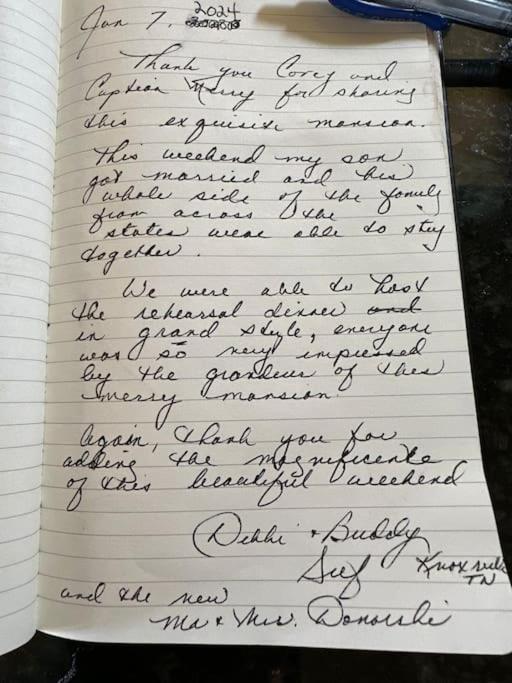 Jan 7, 2024
Thank you Corey and
Caption Merry for sharing
this exquisite mansion.
This weekend my son
got married and his
whole side of the family
from across the
states were able to stay
together.
We were able to host
the rehearsal dinner and
in grand style, everyone
was so very impressed
by the grandeur of this
merry mansion.
Again, thank you for
adding the magnificente
of this beautiful weekend
Debbi + Buddy
Knoxville
TN
and the new
Ma + Mrs.